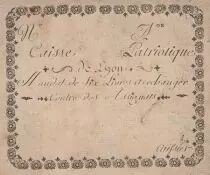 N
Caisse Patriotique
de Lyon
Mandat de Dix Livres à échanger
Contre des Assignats
Caissier